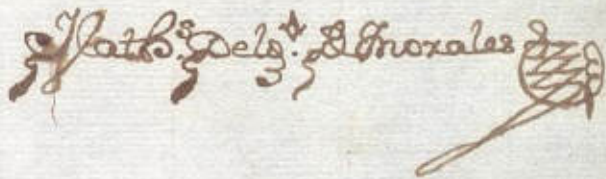 Math.s Delg.do D Morales